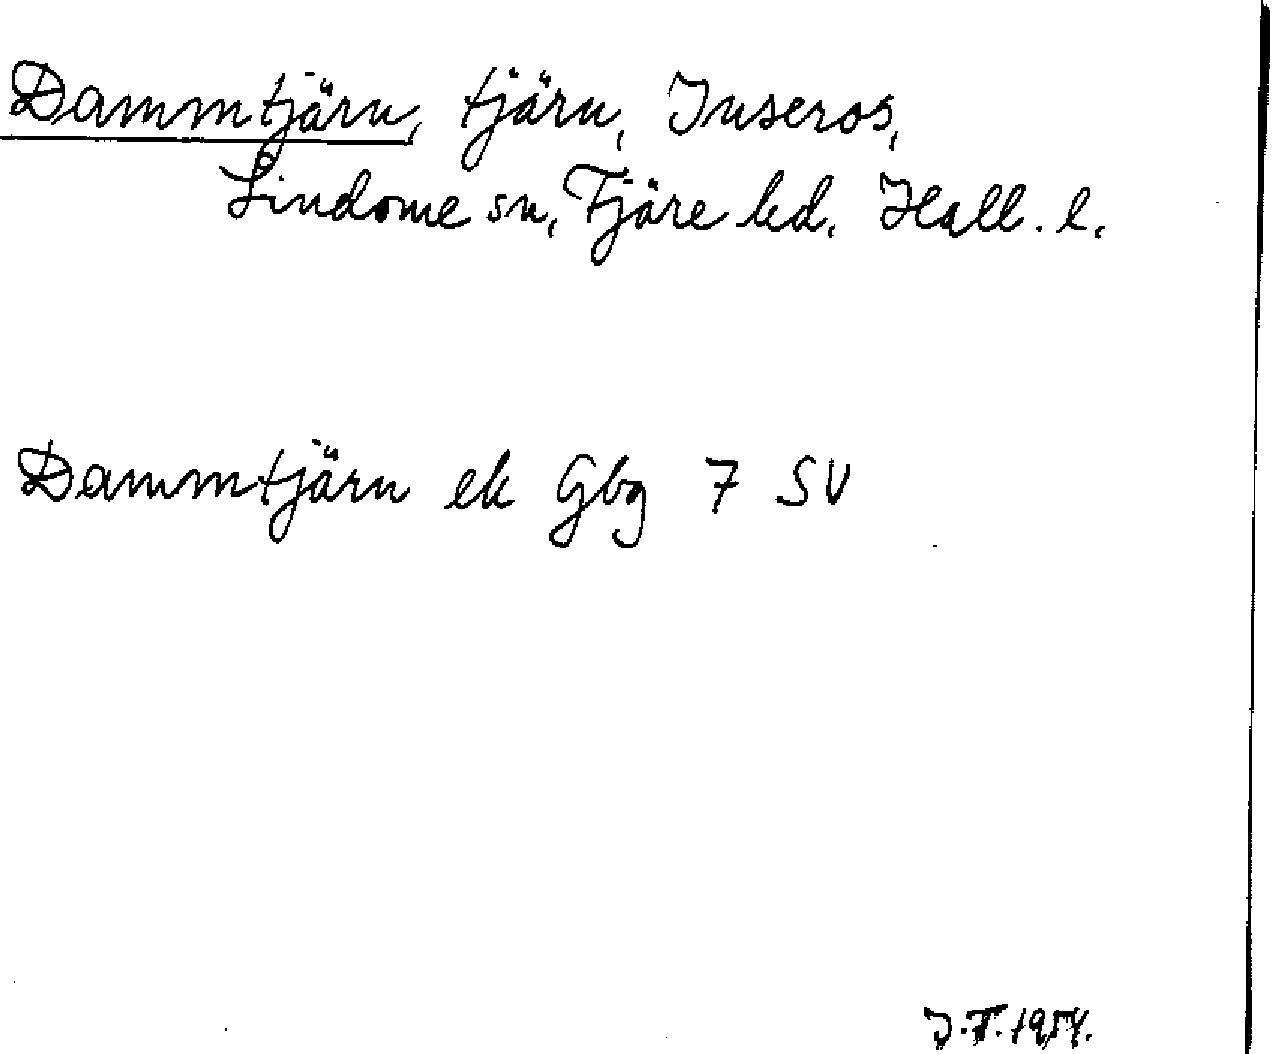 Dammtjärn, tjärn, Inseros,
Lindome sn, Fjäre hd. Hall. l.
Dammtjärn ek Gbg 7 SV
J.T. 1954.